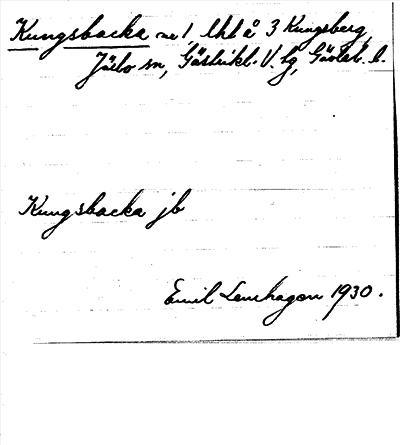 Kungsbacka nr 1 lht å 3 Kungsberg,
Järbo sn, Gästrikl. V. tg, Gävleb. l.
Kungsbacka jb
Emil Lenhagen 1930.